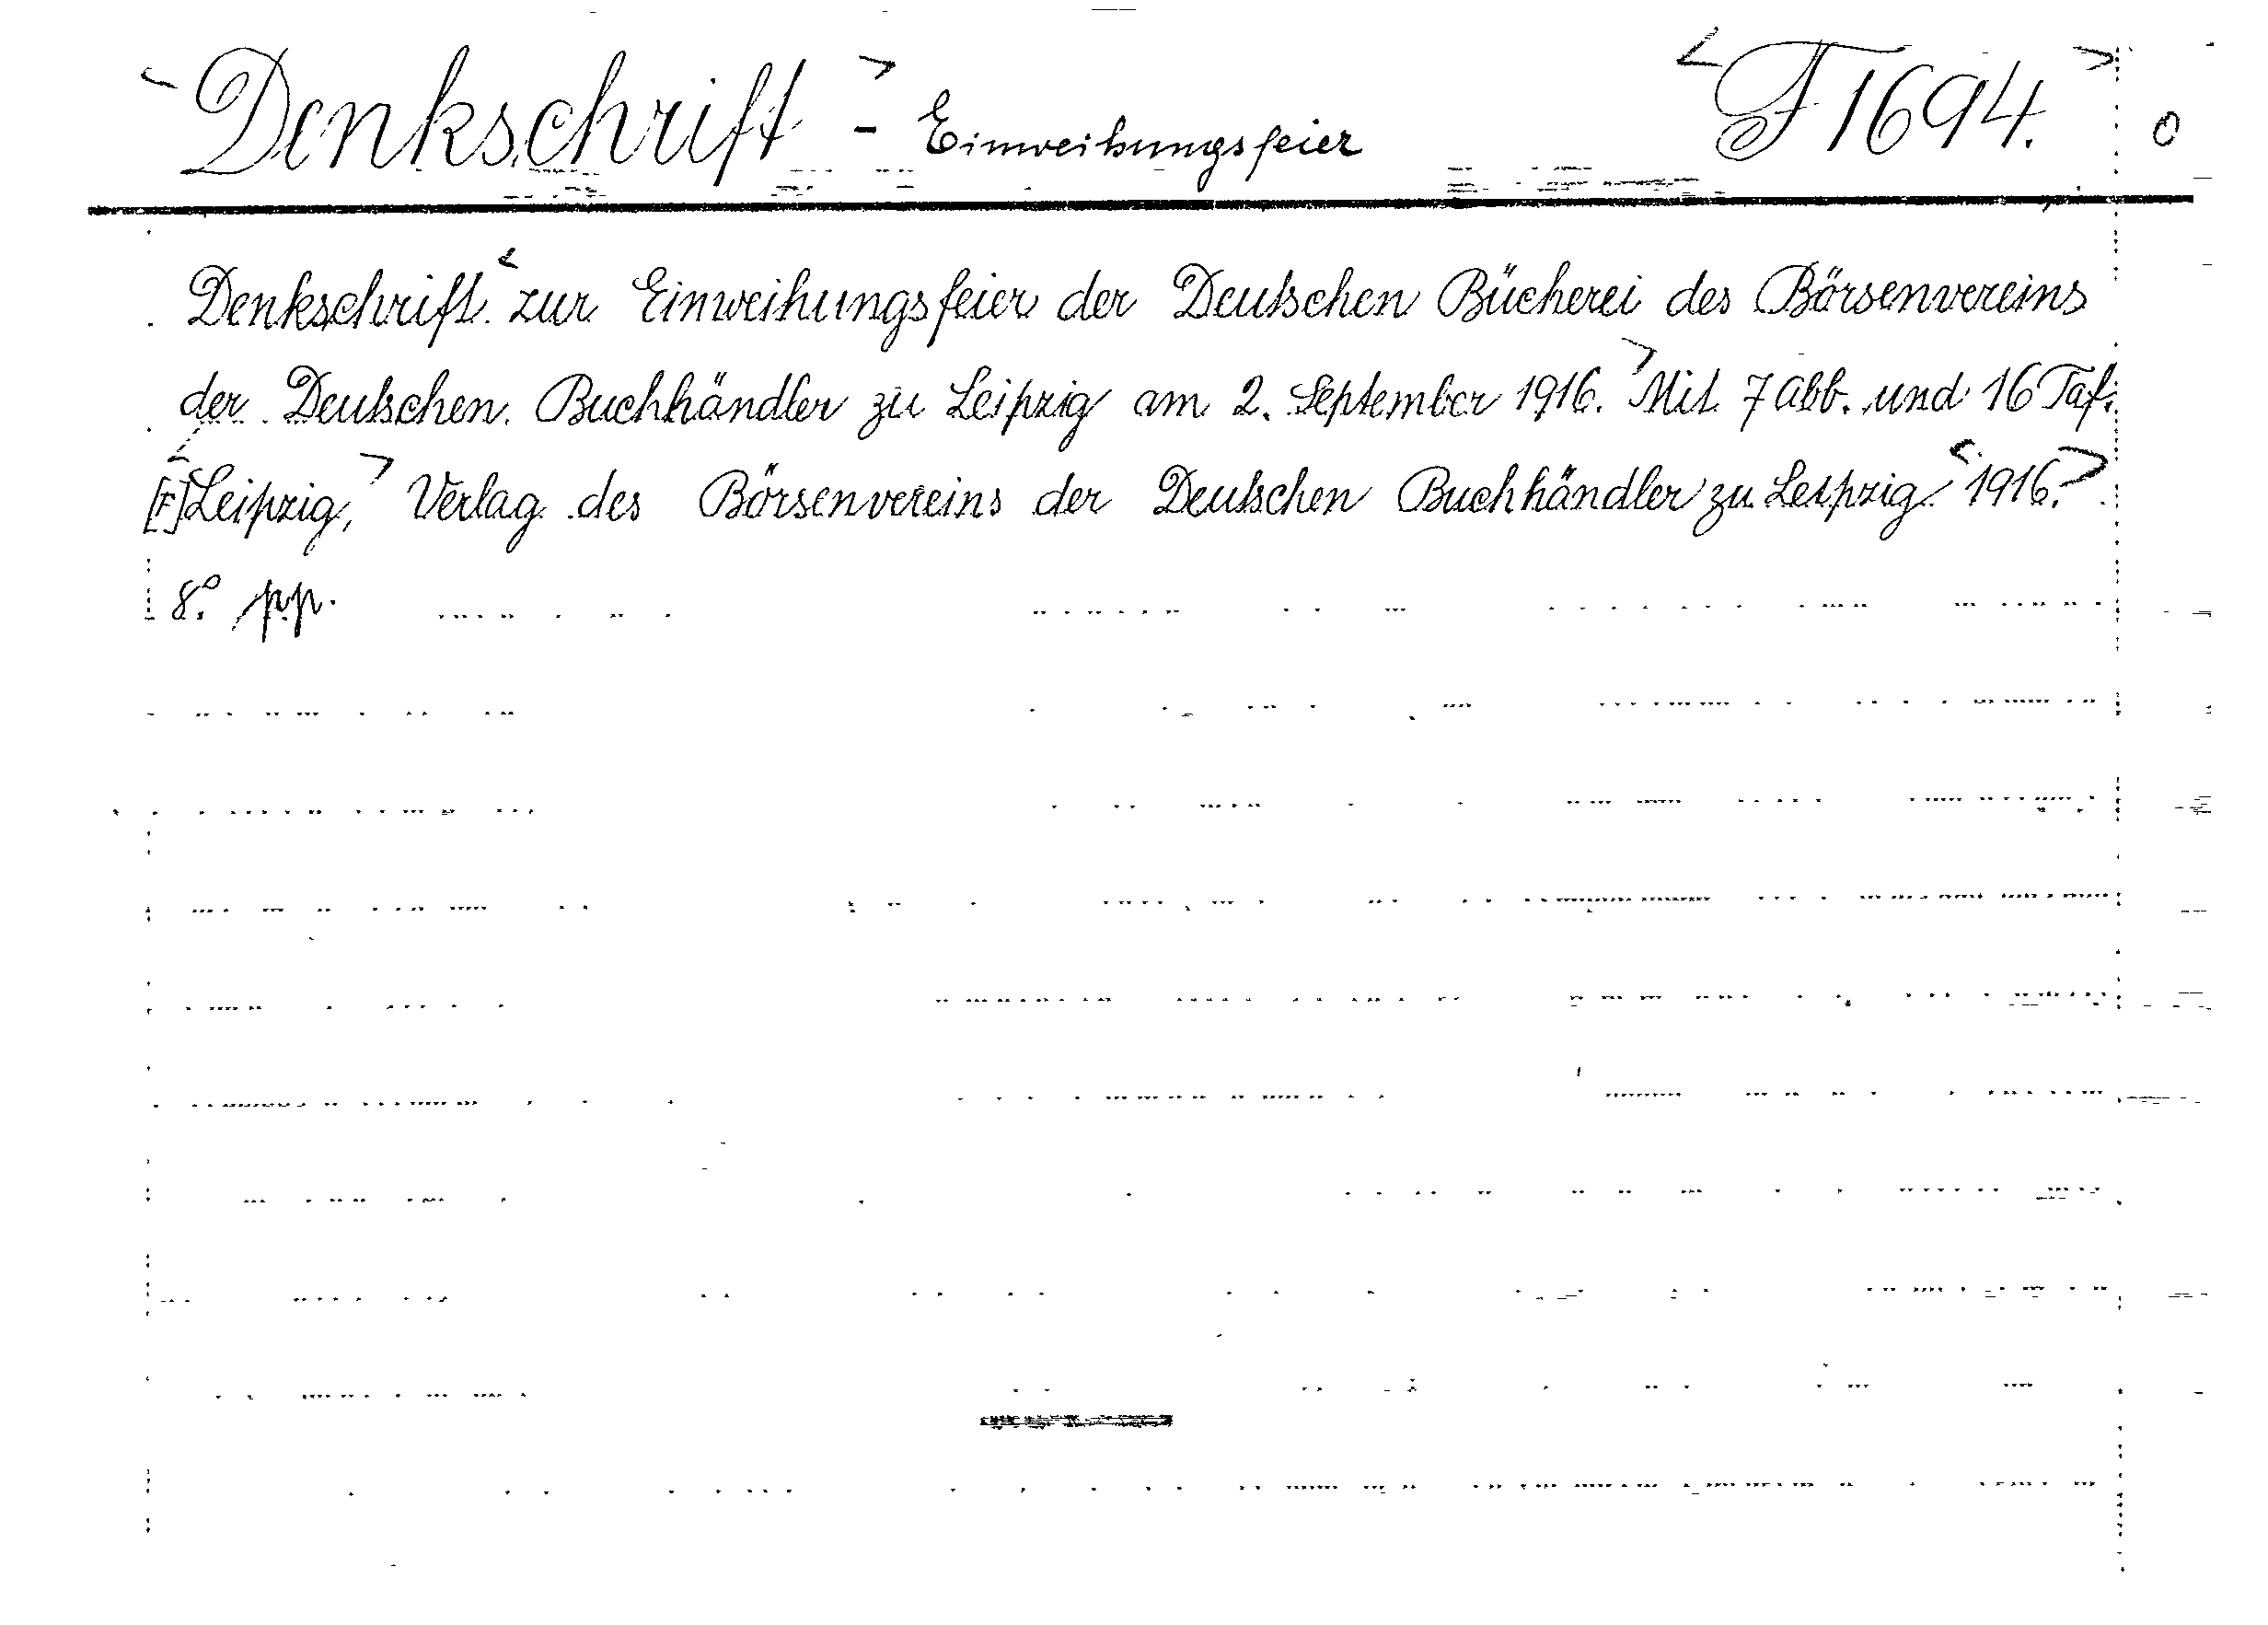 <Denkschrift> - Einweihungsfeier <F 1694.> 0
Denkschrift <zur Einweihungsfeier der Deutschen Bücherei des Börsenvereins
der Deutschen Buchhändler zu Leipzig am 2. September 1916.> Mit 7 Abb. und 16 Taf.
[F]<Leipzig,> Verlag des Börsenvereins der Deutschen Buchhändler zu Leipzig <1916.>
8° p.p.